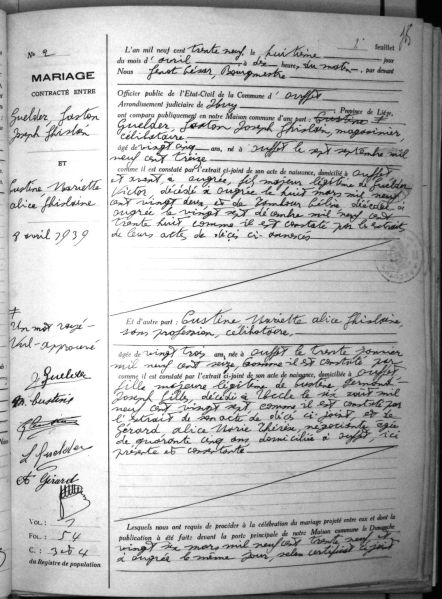 1er feuillet
No 2
MARIAGE
CONTRACTÉ ENTRE
Guelder, Gaston
Joseph Ghislain
ET
Custine Mariette
Alice Ghislaine
8 avril 1939
Un mot rayé
nul-approuvé
J. Guelder
M. Custine
L. Guelder
A. Gérard
VOL : 7
FOL : 54
C. : 3 et 4
du Registre de population
L'an mil neuf cent trente neuf le huitième jour
du mois d'avril à dix heures du matin, par devant
Nous César, Bourgmestre
Officier public de l'Etat-Civil de la Commune d'Ouffet
Arrondissement judiciaire de Huy Province de Liège,
ont comparu publiquement en notre Maison commune d'une part:
Guelder, Gaston Joseph Ghislain, magasinier,
célibataire
âgé de vingt cinq ans, né à Ouffet le sept septembre mil
neuf cent treize
comme il est constaté par l'extrait ci-joint de son acte de naissance, domicilié à Ouffet
et avant à Ougrée, fils majeur légitime de Guelder
Victor, décédé à Ougrée le huit mars mil neuf
cent vingt deux, et de décédée à
Ougrée le vingt sept décembre mil neuf cent
trente huit, comme il est constaté par les extraits
de leurs actes de décès ci-annexés
Et d'autre part: Custine Mariette Alice Ghislaine,
sans profession, célibataire,
âgée de vingt trois ans, née à Ouffet le trente janvier
mil neuf cent seize
comme il est constaté par l'extrait ci-joint de son acte de naissance, domiciliée à Ouffet
fille majeure légitime de Custine Fernand
Joseph Gilles, décédé à Uccle le six août mil
neuf cent vingt sept, comme il est constaté par
l'extrait de son acte de décès ci-joint et de
Gérard, Alice Marie Thérèse, négociante, âgée
de quarante cinq ans domiciliée à Ouffet, ici
présente et consentante
Lesquels nous ont requis de procéder à la célébration du mariage projeté entre eux et dont la
publication a été faite devant la porte principale de notre Maison commune le Dimanche
vingt six mars mil neuf cent trente neuf et
à Ougrée le même jour, selon certificat ci-joint